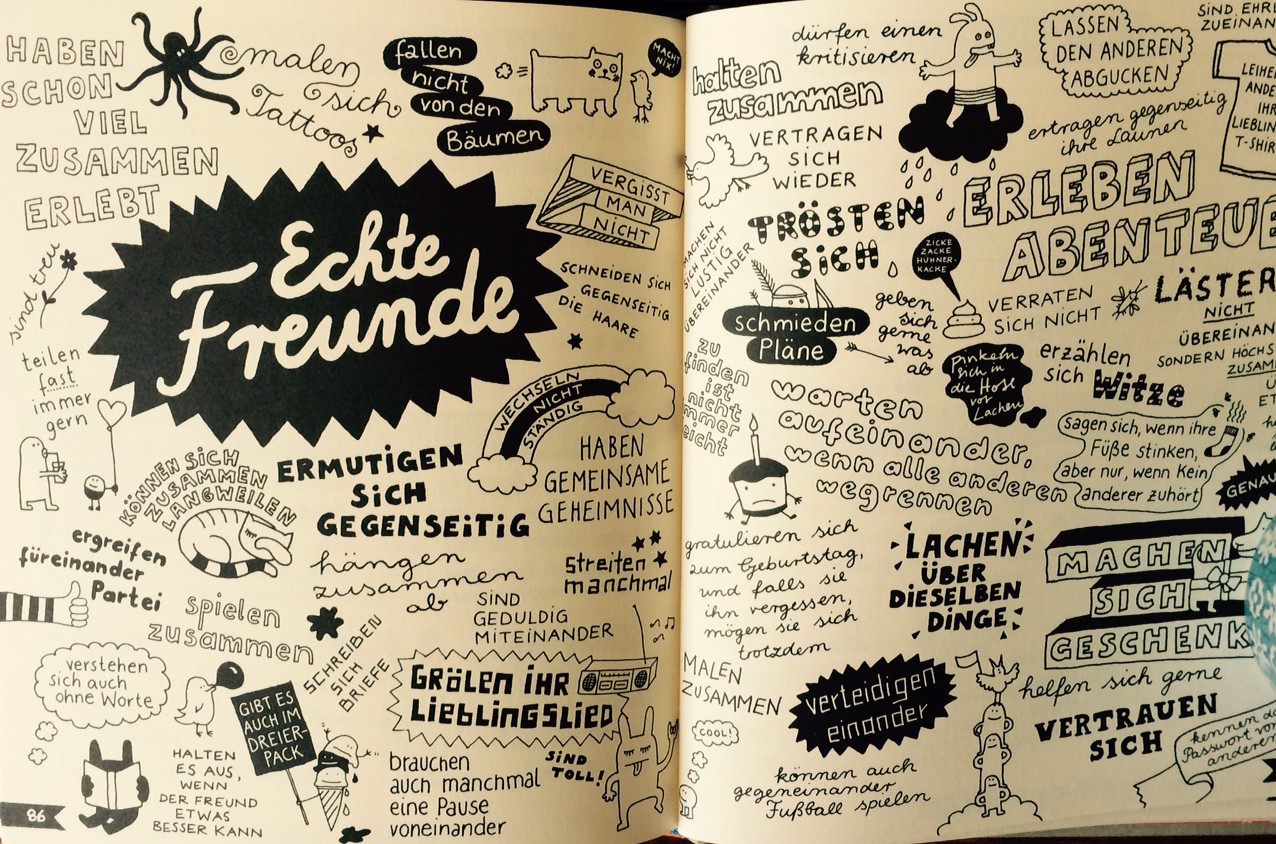 HABEN
SCHON
VIEL
ZUSAMMEN
ERLEBT
malen
sich
Tattoos
fallen
nicht
von den
Bäumen
MACHT
NIX!
VERGISST
MAN
NICHT
Echte
Freunde
sind treu
SCHNEIDEN SICH
GEGENSEITIG
DIE HAARE
teilen
fast
immer
gern
WECHSELN
NICHT
STÄNDIG
KÖNNEN SICH
ZUSAMMEN
LANGWEILEN
ERMUTIGEN
SICH
GEGENSEITIG
HABEN
GEMEINSAME
GEHEIMNISSE
ergreifen
füreinander
Partei
hängen
zusammen
ab
Streiten
manchmal
spielen
zusammen
SIND
GEDULDIG
MITEINANDER
SCHREIBEN
SICH
BRIEFE
verstehen
sich auch
ohne Worte
GIBT ES
AUCH IM
DREIER-
PACK
GRÖLEN IHR
LIEBLINGSLIED
HALTEN
ES AUS,
WENN
DER FREUND
ETWAS
BESSER KANN
brauchen
auch manchmal
eine Pause
voneinander
SIND
TOLL!
86
halten
zusammen
dürfen einen
kritisieren
LASSEN
DEN ANDEREN
ABGUCKEN
SIND EHRL
ZUEINAN
LEIHE
ANDE
IHR
LIEBLIN
T-SHIR
VERTRAGEN
SICH
WIEDER
ertragen gegenseitig
ihre Launen
TRÖSTEN
SICH
ERLEBEN
ABENTEUE
MACHEN
SICH NICHT
LUSTIG
ÜBEREINANDER
ZICKE
ZACKE
HÜHNER-
KACKE
schmieden
Pläne
geben
sich
gerne
was
ab
VERRATEN
SICH NICHT
LÄSTER
NICHT
ÜBEREINAN
SONDERN HÖCHS
ZUSAM
zu
finden
ist
nicht
immer
leicht
Pinkeln
sich in
die Hose
vor
Lachen
erzählen
sich Witze
warten
aufeinander,
wenn alle anderen
wegrennen
sagen sich, wenn ihre
Füße stinken,
aber nur, wenn kein
anderer zuhört
GENAU
gratulieren sich
zum Geburtstag,
und falls sie
ihn vergessen,
mögen sie sich
trotzdem
LACHEN
ÜBER
DIESELBEN
DINGE
MACHEN
SICH
GESCHENK
MALEN
ZUSAMMEN
COOL!
verteidigen
einander
helfen sich gerne
VERTRAUEN
SICH
kennen da
Passwort vo
anderen
können auch
gegeneinander
Fußball spielen